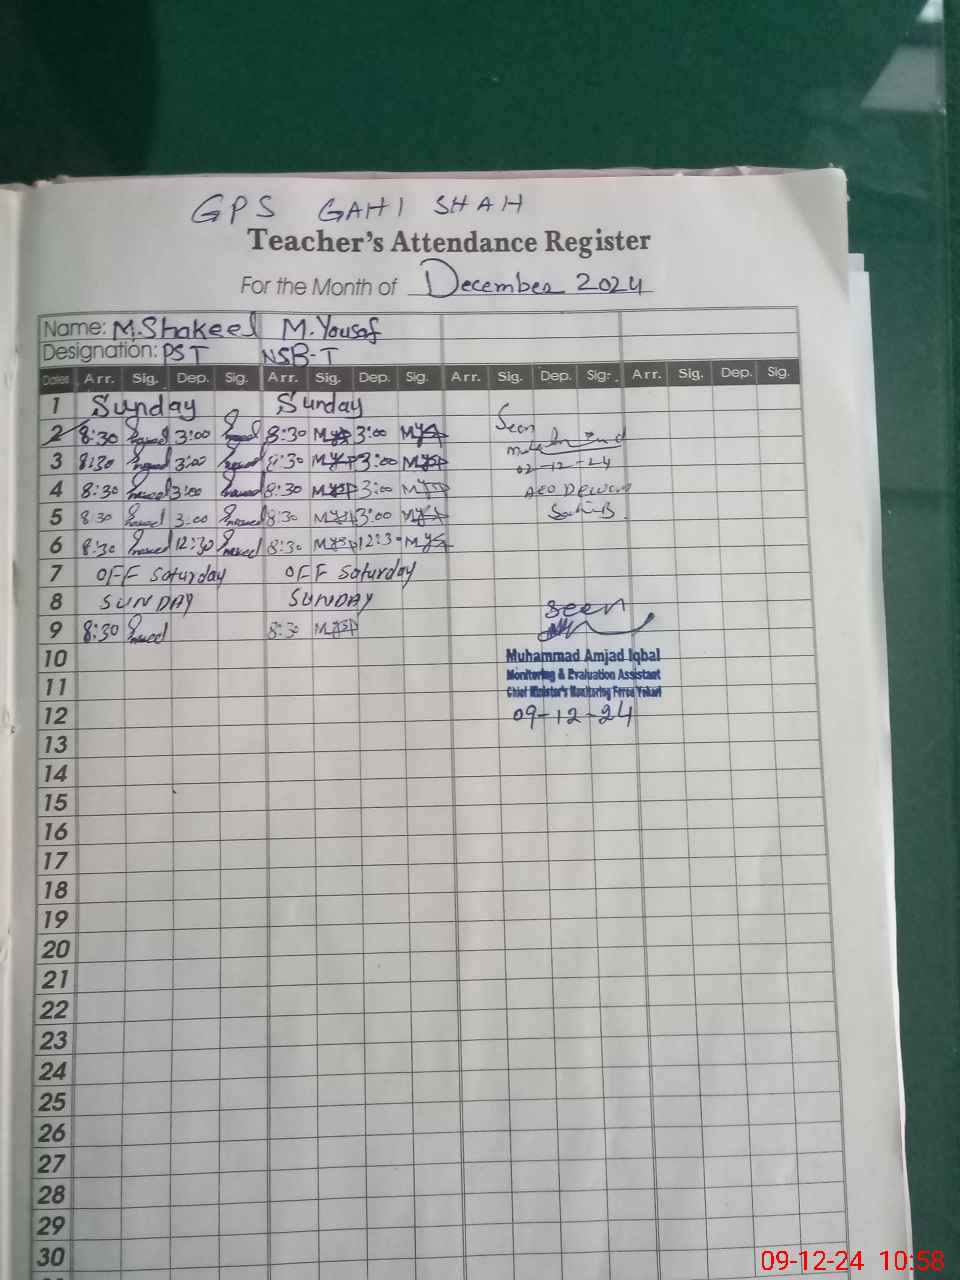 GPS GAHI SHAH
Teacher's Attendance Register
For the Month of December 2024
Name: M.Shakeel M.Yousaf
Designation: PST NSB-T
Dates Arr. Sig. Dep. Sig. Arr. Sig. Dep. Sig. Arr. Sig. Dep. Sig. Arr. Sig. Dep. Sig.
1 Sunday Sunday
2 8:30 3:00 8:30 3:00 Seen
3 8:30 3:00 8:30 3:00 02-12-24
4 8:30 3:00 8:30 3:00 AEO
5 8:30 3:00 8:30 3:00
6 8:30 12:30 8:30 12:3
7 OFF Saturday OFF Saturday
8 SUNDAY SUNDAY Seen
9 8:30 8:30
10 Muhammad Amjad Iqbal
11 Monitoring & Evaluation Assistant
Chief Minister's Monitoring Force
12 09-12-24
13
14
15
16
17
18
19
20
21
22
23
24
25
26
27
28
29
30
09-12-24 10:58